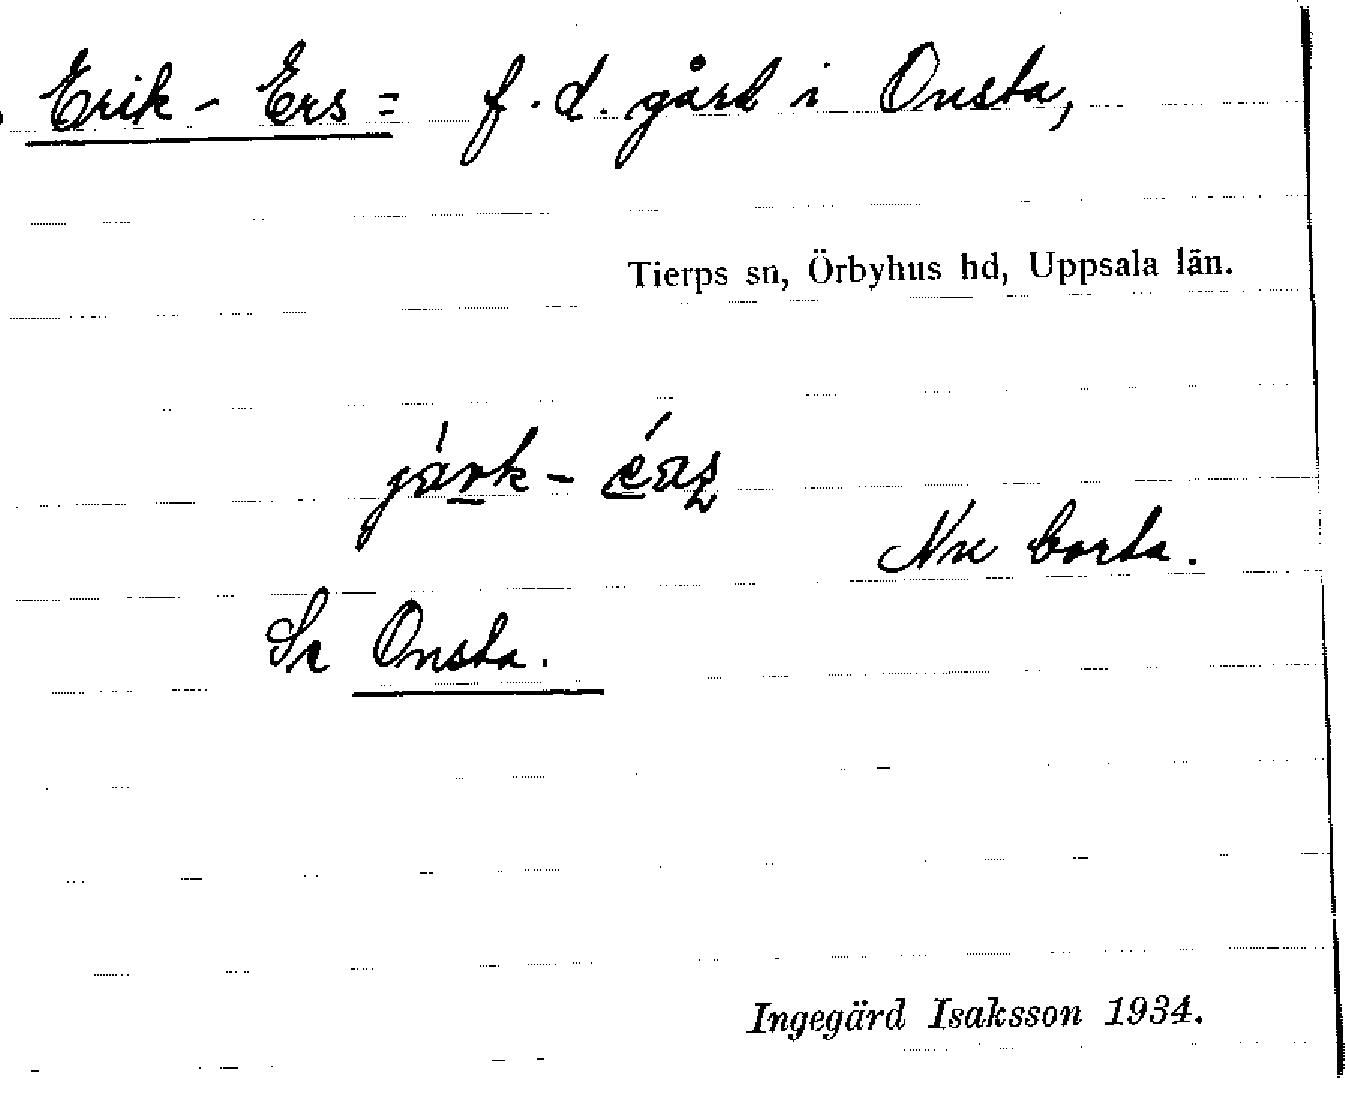 Erik-Ers= f.d. gård i Onsta,
Tierps sn, Örbyhus hd, Uppsala län.
Nu borta.
Se Onsta.
Ingegärd Isaksson 1934.